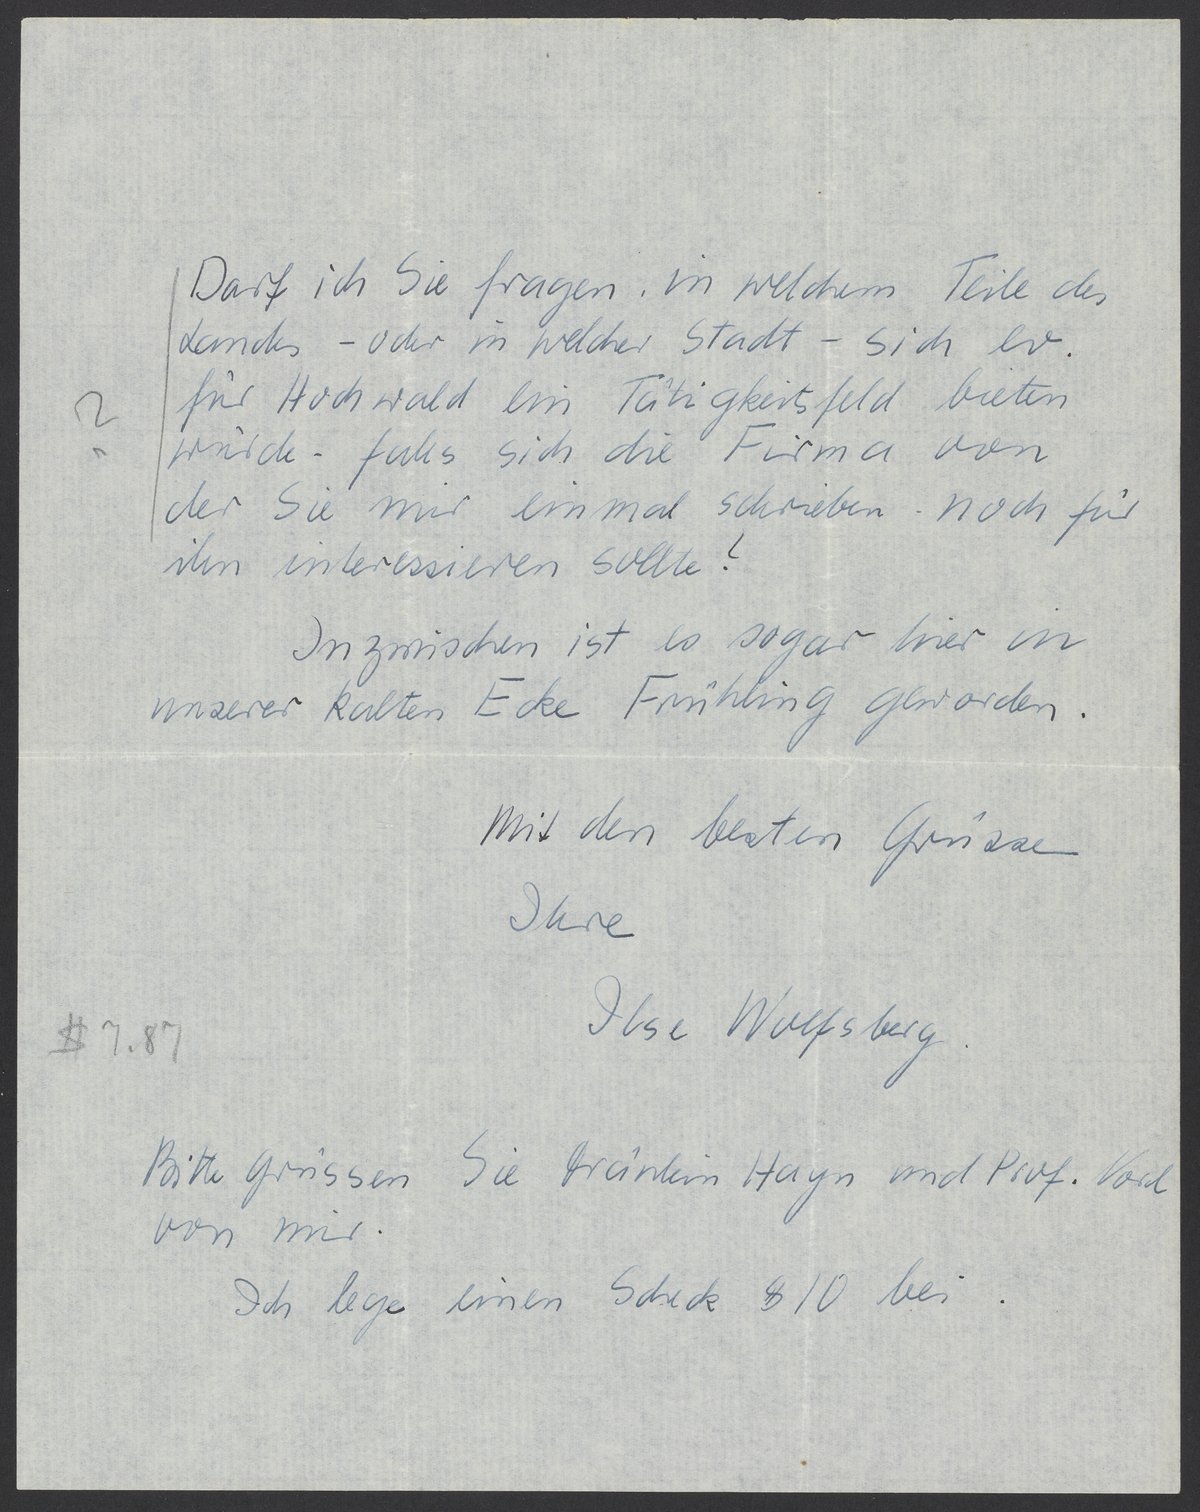 Darf ich Sie fragen. in welchem Teile des
Landes - oder in welcher Stadt - sich ev.
für Hochwald ein Tätigkeitsfeld bieten
?
würde - falls sich die Firma von
der Sie mir einmal schrieben - noch für
ihn interessieren sollte?
Inzwischen ist es sogar hier in
unserer kalten Ecke Frühling geworden.
Mit den besten Grüsse
Ihre
Ilse Wolfsberg.
$7.87
Bitte grüssen Sie Fräulein Hayn und Prof.
von mir.
Ich lege einen Scheck $10 bei.